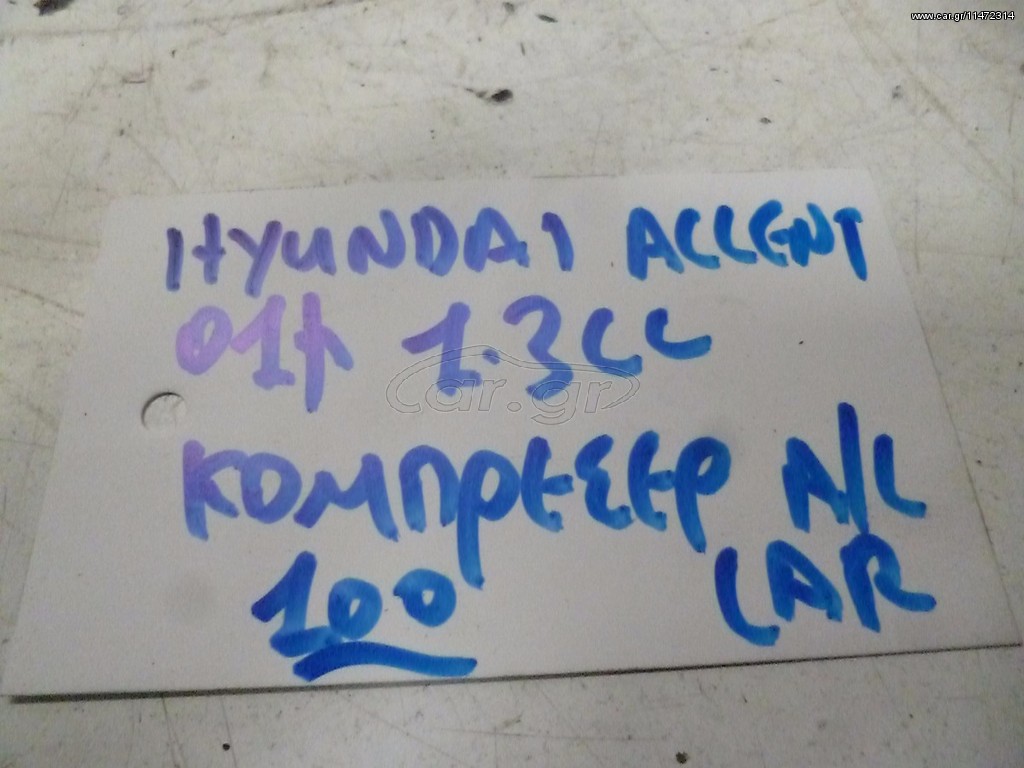 www.car.gr/11472314
HYUNDAI ACCENT
01μ 1.3CC
car.gr
ΚΟΜΠΡΕΣΕΡ A/C
100 CAR